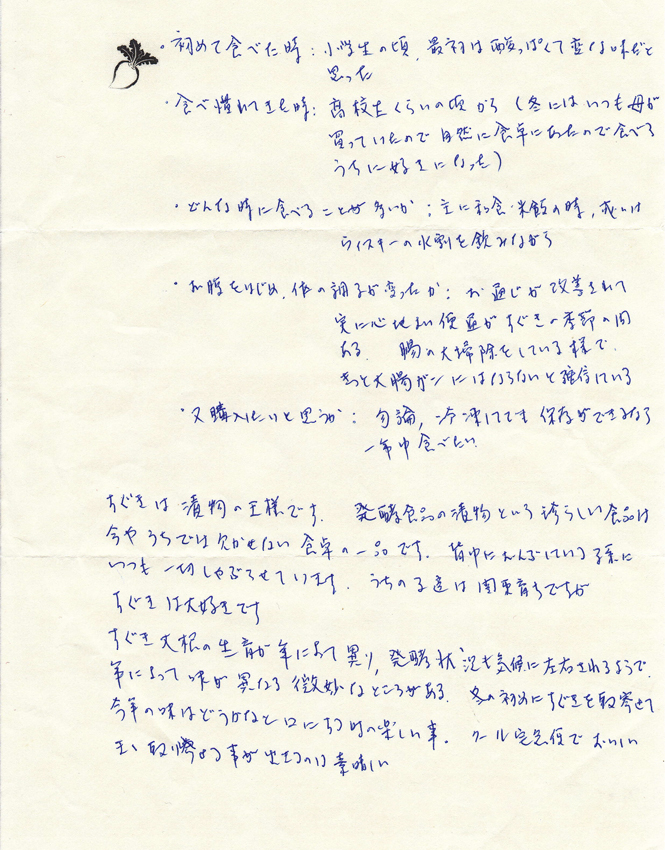 ・初めて食べた時：小学生の頃、最初は酸っぱくて変な味だと
思った
・食べ慣れてきた時：高校生くらいの頃から（冬にはいつも母が
買っていたので自然に食卓にあったので食べる
うちに好きになった）
・どんな時に食べることが多いか：主に和食・米飯の時、或いは
ウィスキーの水割を飲みながら
・お腹をはじめ、体の調子が変ったか：お通じが改善されて
実に心地よい便通がすぐきの季節の間
ある。腸の大掃除をしている様で、
きっと大腸ガンにはならないと確信している
・又購入したいと思うか：勿論、冷凍してでも保存ができるなら
一年中食べたい
すぐきは漬物の王様です。発酵食品の漬物という誇らしい食品は
今やうちでは欠かせない食卓の一品です。背中におんぶしている孫に
いつも一切しゃぶらせています。うちの子達は関東育ちですが
すぐきは大好きです
すぐき大根の生育が年によって異り、発酵状況も気候に左右されるようで、
年によって味が異なる微妙なところがある。冬の初めにすぐきを取寄せて
今年の味はどうかなと口にする時の楽しい事。クール宅急便でおいしい
まま取り寄せる事が出来るのは素晴しい